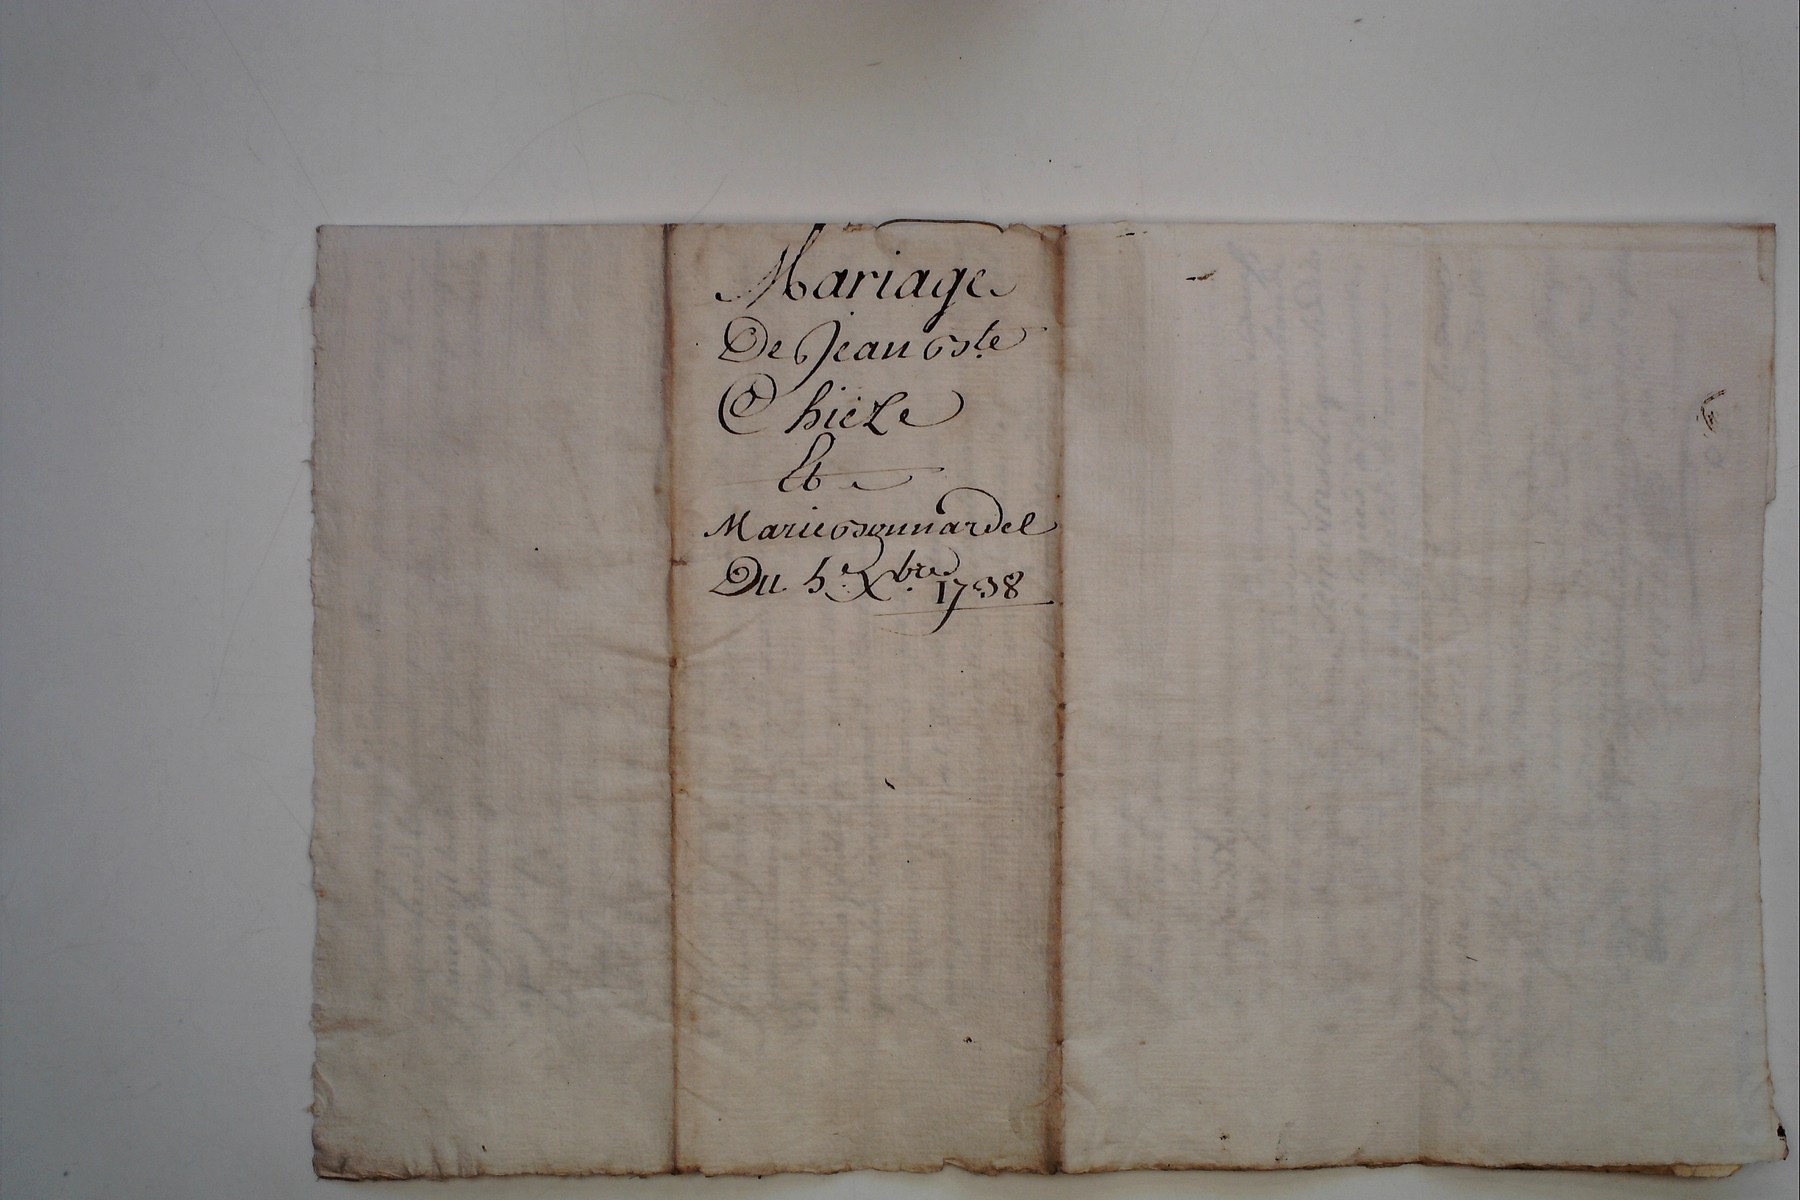 Mariage
De Jean Bte
Chieze
Et
Marie Bonnardel
Du 5e Xbre 1738